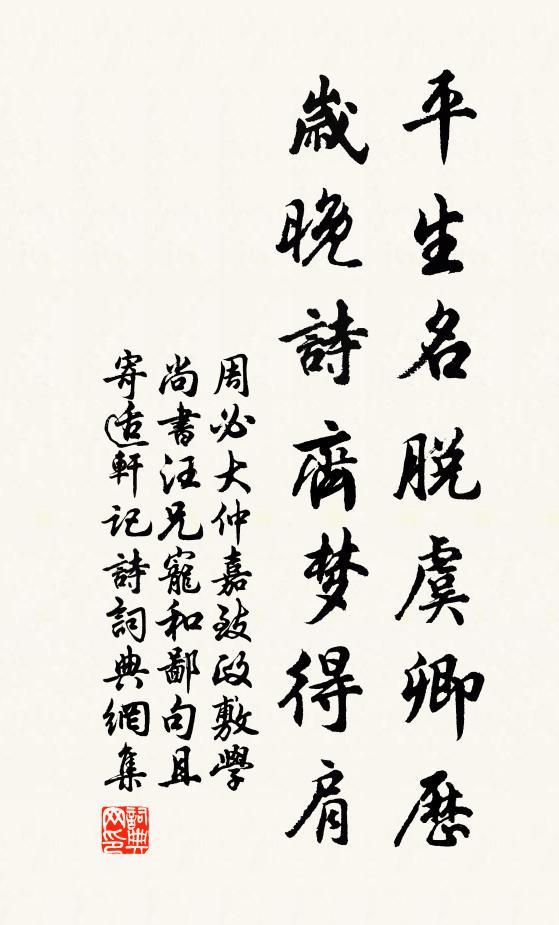 平生名脱虞卿歷
歲晚詩齊梦得肩
周必大仲嘉致政敷學
尚書汪兄寵和鄙句且
寄适軒記詩詞典網集
詞典網印